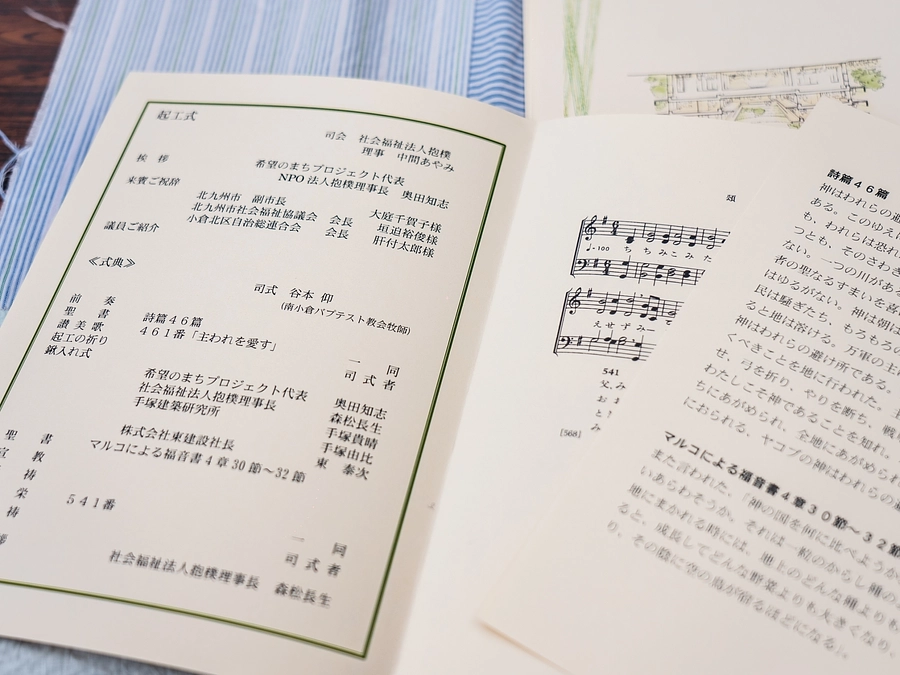 起工式
司会 社会福祉法人抱樸
理事 中間あやみ
挨 拶 希望のまちプロジェクト代表
NPO法人抱樸理事長 奥田知志
来賓ご祝辞
北九州市 副市長 大庭千賀子様
北九州市社会福祉協議会 会長 垣迫裕俊様
小倉北区自治総連合会 会長 肝付太郎様
議員ご紹介
≪式典≫
司式 谷本 仰
(南小倉バプテスト教会牧師)
前 奏
聖 書 詩篇46篇
讃 美 歌 461番「主われを愛す」 一 同
起工の祈り 司 式 者
鍬入れ式
希望のまちプロジェクト代表 奥田知志
社会福祉法人抱樸理事長 森松長生
手塚建築研究所 手塚貴晴
手塚由比
株式会社東建設社長 東 泰次
聖 書 マルコによる福音書4章30節~32節
教
祷
栄 541番 一 同
祷 司 式 者
拶 社会福祉法人抱樸理事長 森松長生
頌
♩=100
ち ち み こ み た
え せ ず み― て
541
父、み
お ま
と!
み
[568]
詩篇46篇
神はわれらの避
ある。このゆえに
も、われらは恐れ
つとも、そのさわぎ
ない。一つの川がある
者の聖なるすまいを喜
はゆるがない。神は朝は
民は騒ぎたち、もろもろの
ると地は溶ける。万軍の主
神はわれらの避け所である。
くべきことを地に行われた。
せ、弓を折り、やりを断ち、戦
わたしこそ神であることを知れ。
ちにあがめられ、全地にあがめられ
におられる、ヤコブの神はわれらの避
マルコによる福音書4章30節~32節
また言われた、「神の国を何に比べようか
いあらわそうか。それは一粒のからし種の
地にまかれる時には、地上のどんな種よりも
ると、成長してどんな野菜よりも大きくなり、
り、その陰に空の鳥が宿るほどになる」。